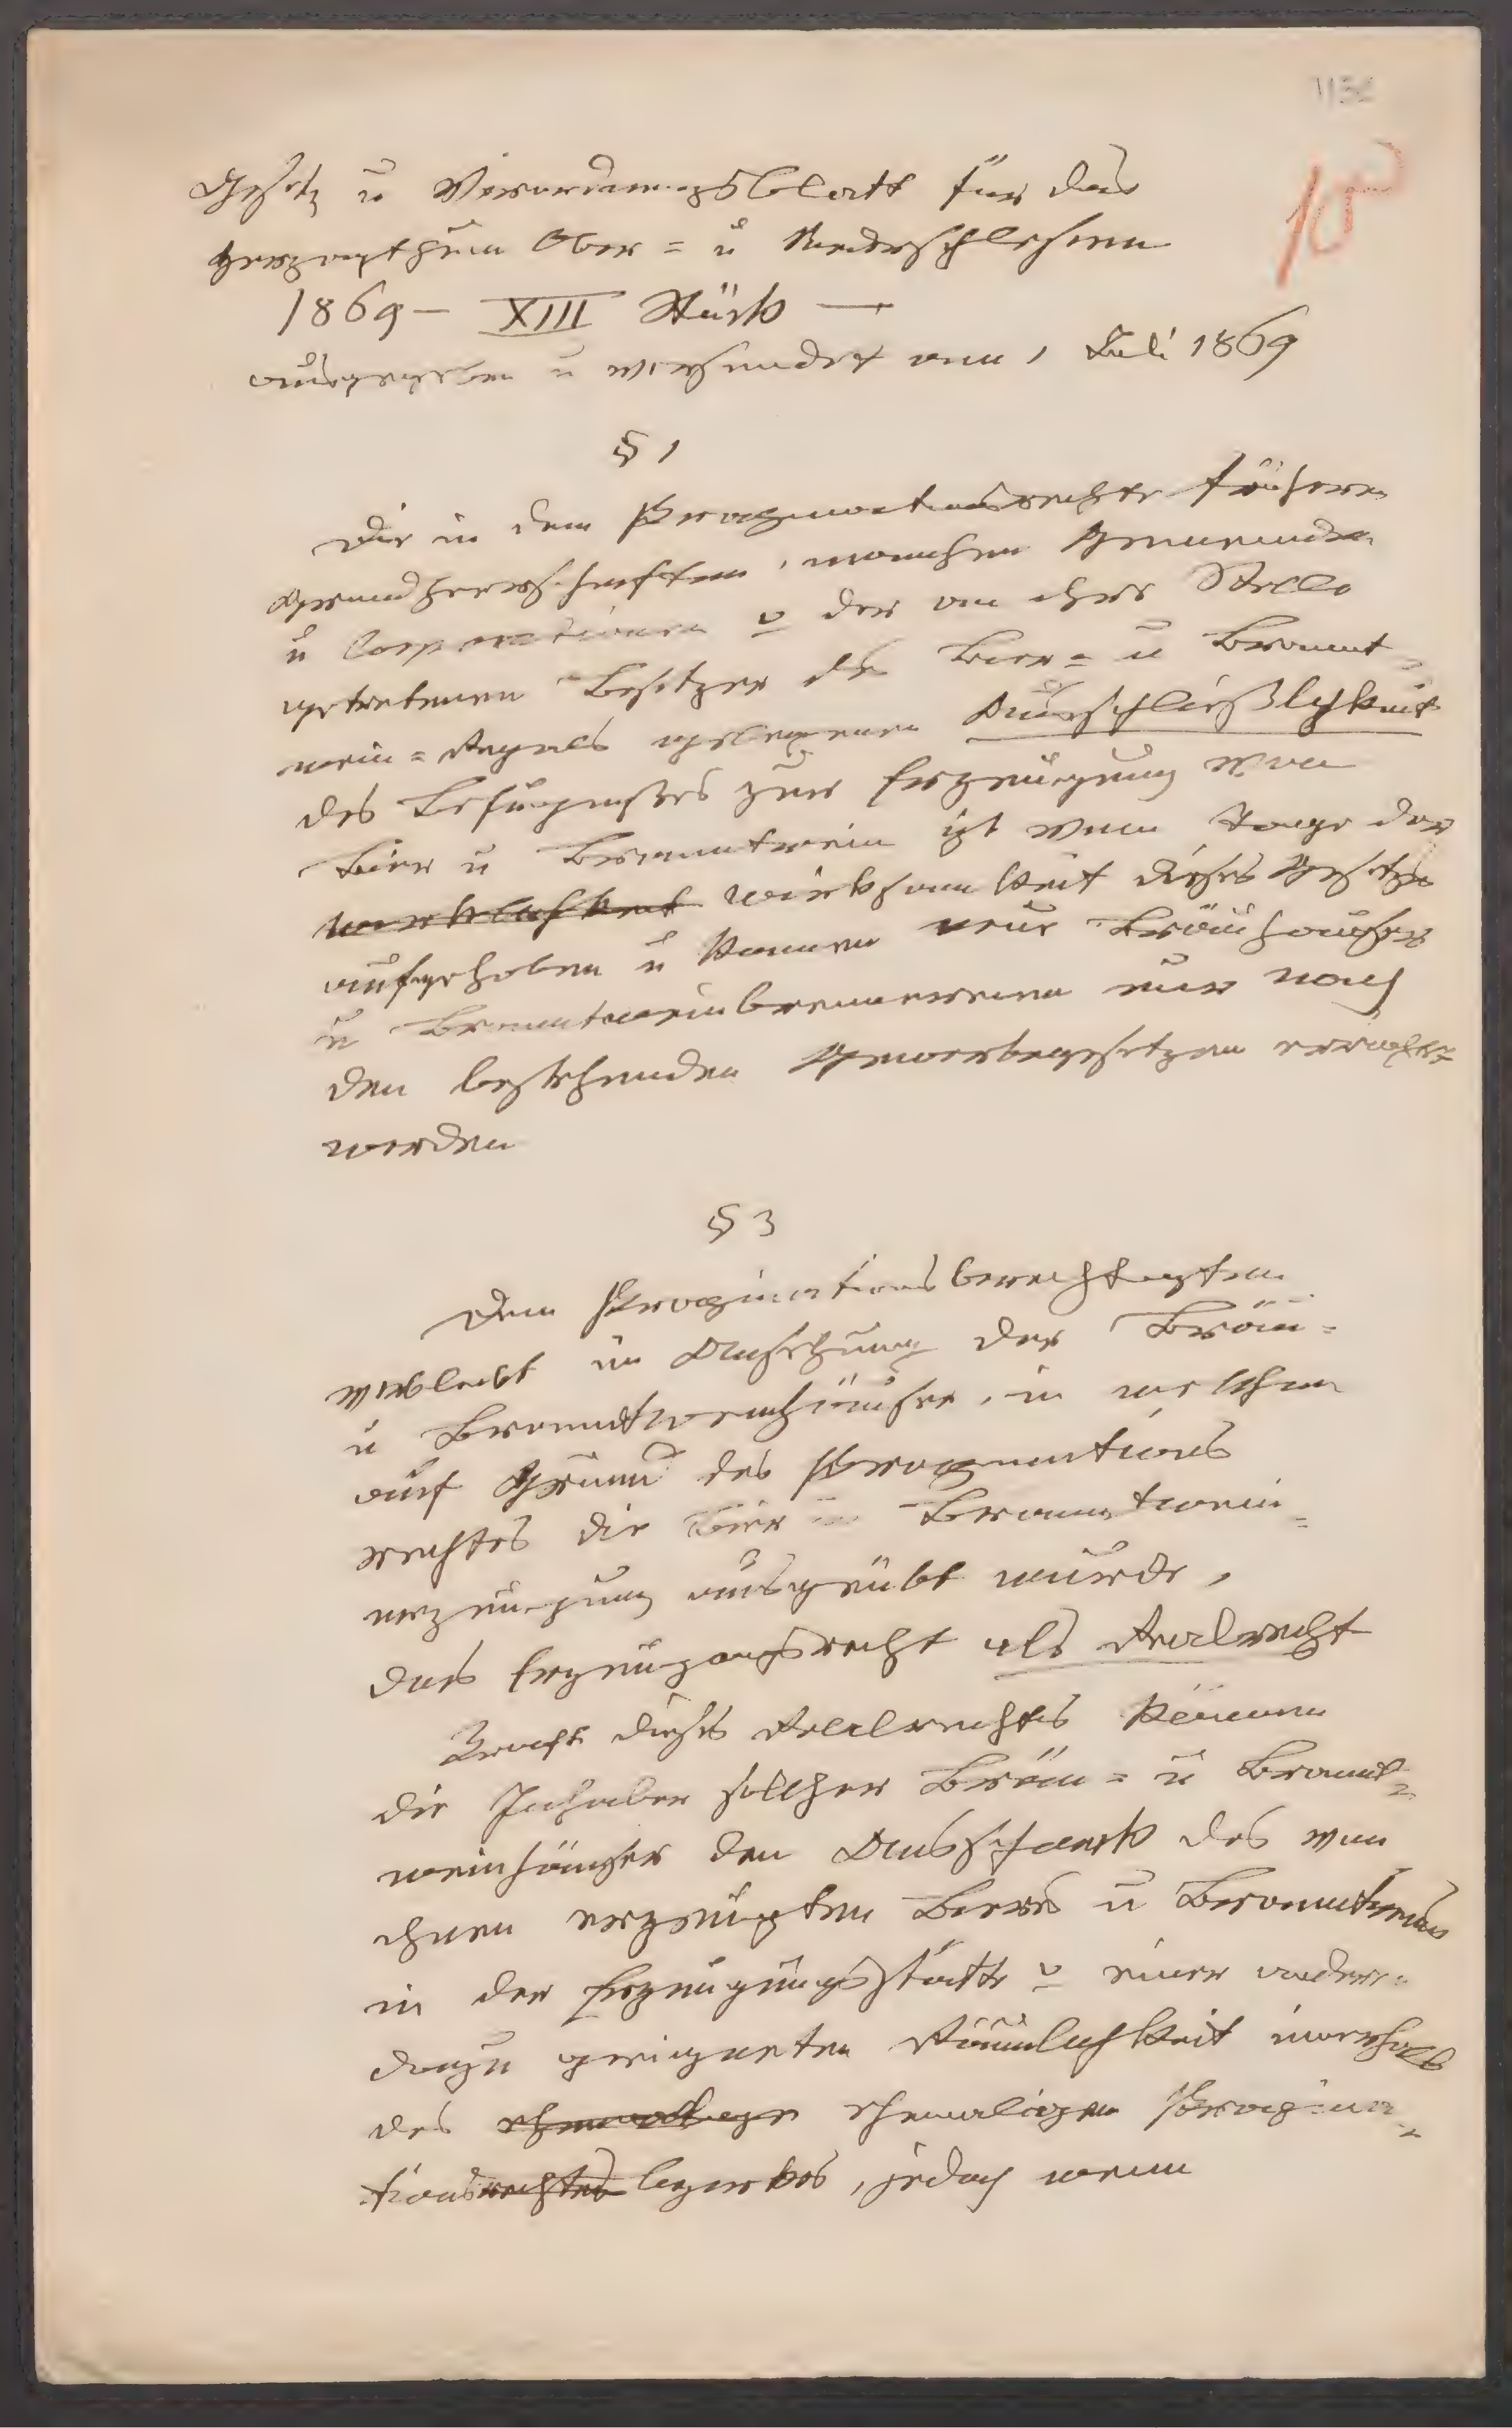 Gesetz u Verordnungsblatt für das
Herzogthum Ober = u Niederschlesien
1869 – XIII Stück —
ausgegeben u versendet am 1 Juli 1869
10
§ 1
Die in dem Propinationsrechte früherer
Grundherrschaften, mancher Gemeinden
u Corporationen o der an ihre Stelle
getretenen Besitzer des Bier = u Brannt=
wein = Regals gelegenen Ausschließlichkeit
des Befugnißes zur Erzeugung von
Bier u Branntwein ist vom Tage der
Wirklichkeit Wirksamkeit dieses Gesetzes
aufgehoben u können neue Bräuhäuser
u Branntweinbrennereien nur nach
den bestehenden Gewerbegesetzen errichtet
werden
§ 3
Dem Propinationsberechtigten
verbleibt in Ansehung der Bräu=
u Branntweinhäuser, in welchen
auf Grund des Propinations
rechtes die Bier u Branntwein=
erzeugung ausgeübt wurde,
das Erzeugungsrecht als Realrecht
Kraft dieses Realrechtes können
die Inhaber solcher Bräu = u Brannt=
weinhäuser den Ausschank des von
ihnen erzeugten Bieres u Branntweins
in der Erzeugungsstätte o einer anderen
dazu geeigneten Räumlichkeit innerhalb
des ehemaligen ehemaligen Propina=
tionsrechtes bezirkes, jedoch wenn